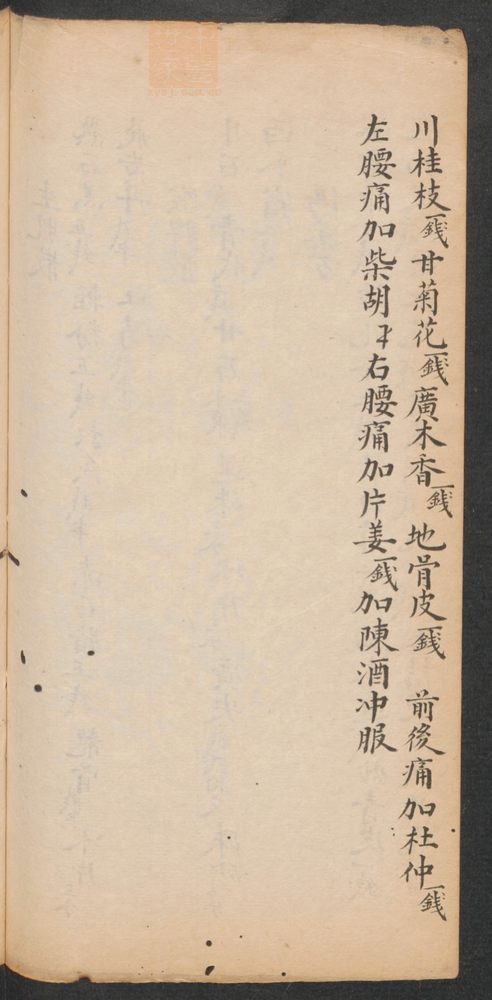 川桂枝一錢甘菊花一錢廣木香一錢地骨皮一錢前後痛加杜仲一錢
左腰痛加柴胡 右腰痛加片姜一錢加陳酒冲服